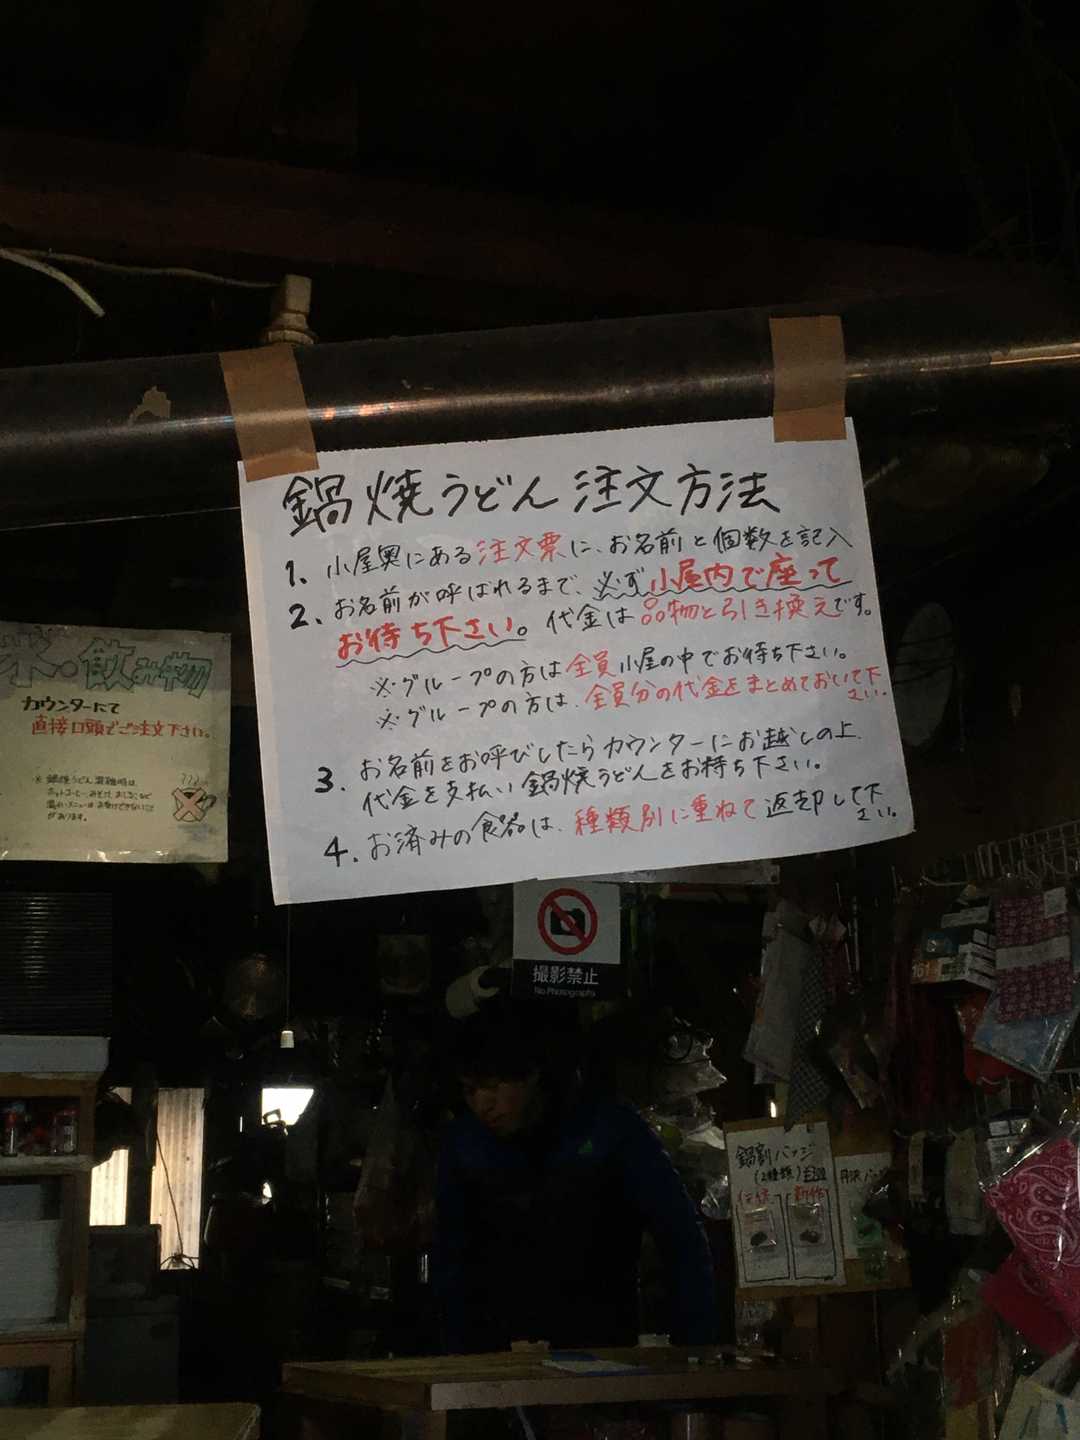 鍋焼うどん注文方法
1. 小屋奥にある注文票に、お名前と個数を記入
2. お名前が呼ばれるまで、必ず小屋内で座って
お待ち下さい。代金は品物と引き換えです。
※グループの方は全員小屋の中でお待ち下さい。
※グループの方は、全員分の代金をまとめておいて下さい。
3. お名前をお呼びしたらカウンターにお越しの上、
代金を支払い鍋焼うどんをお待ち下さい。
4. お済みの食器は、種類別に重ねて返却して下さい。
飲み物
カウンターにて
直接口頭でご注文下さい。
※鍋焼うどん混雑時は、
ホットコーヒー、みそ汁、おしるこなど
温かいメニューはお受けできないこと
があります。
撮影禁止
No Photographs
鍋割バッジ
(2種類)
伝統
新作
丹沢バッジ
161